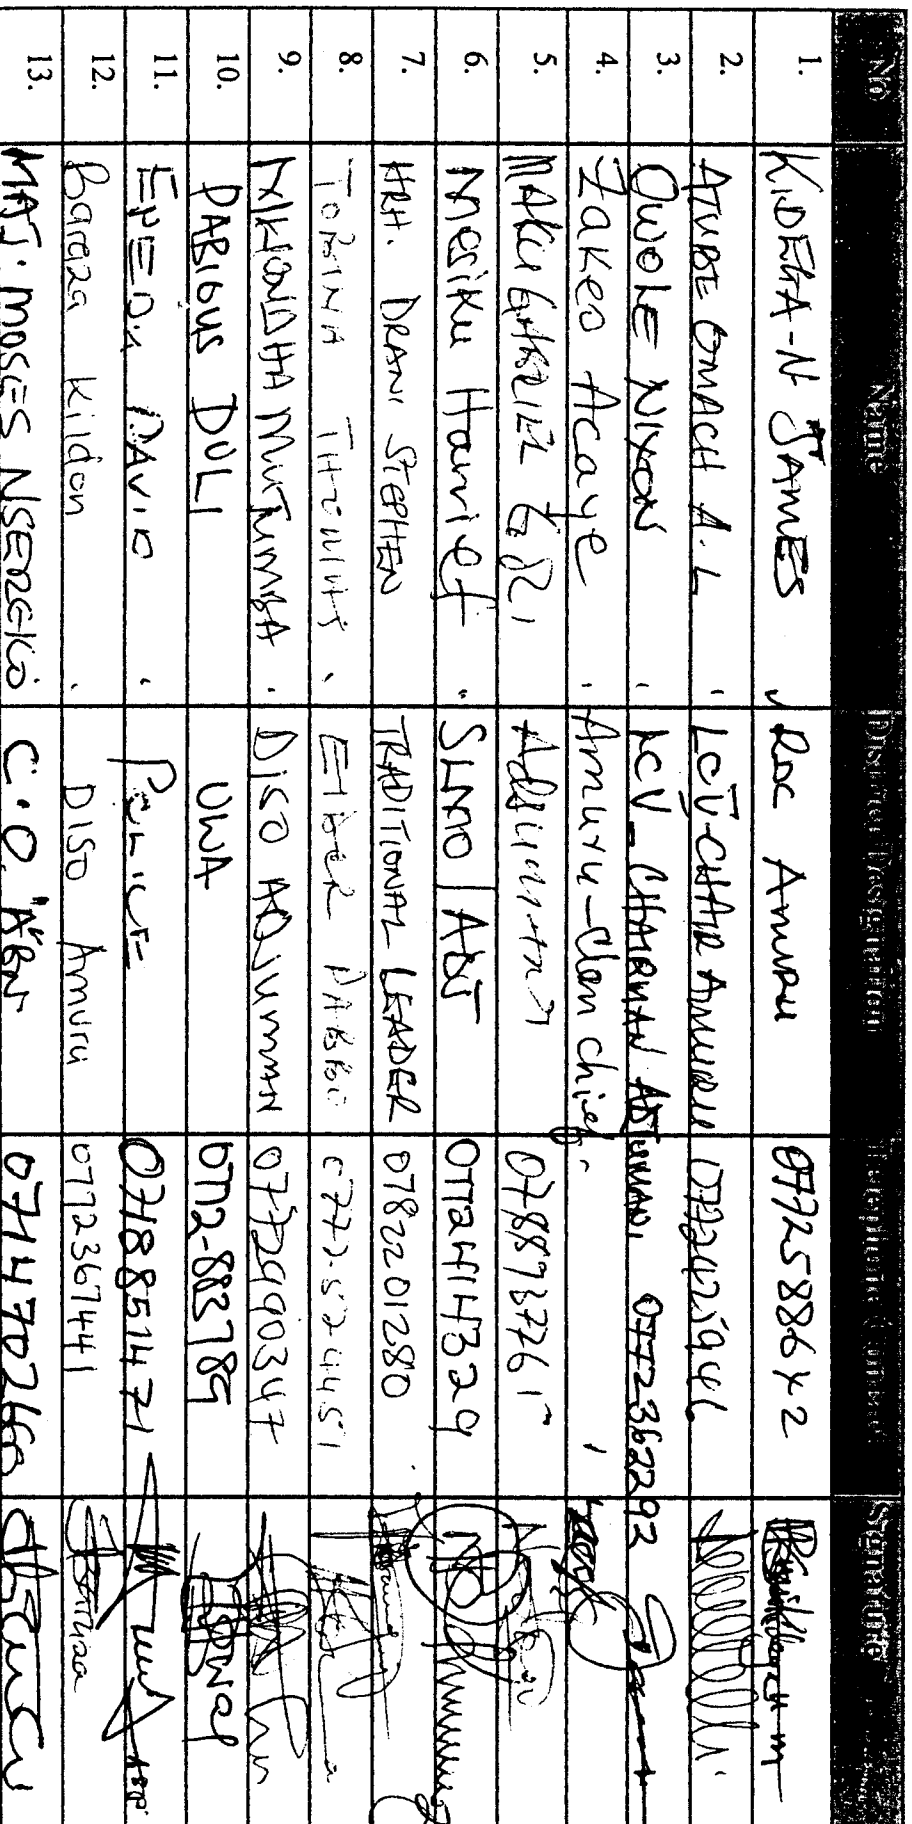 No Name District Designation Telephone Contact Signature
1. KIDEGA-N JAMES RDC Amuru 0772588642
2. ATUBE OMACH A.L LCV-CHAIR AMURU 0772425946
3. OWOLE NIXON LCV_CHAIRMAN ADJUMANI 0772362292
4. Zakeo Acaye Amuru-Clan chief
5. 0788737761
6. Mesiku Harriet SLMO/ADJ 0772414329
7. HRH. DRANI STEPHEN TRADITIONAL LEADER 0782201280
8. 0772-524451
9. MUTUMBA DISO ADJUMANI 0772990347
10. PABIOUS DULI UWA 0772-883785
11. DAVID POLICE 0718851471
12. Baraza Kildon DISO Amuru 0772367441
13. MAJ: MOSES NSEREKO C.O. 0714702460